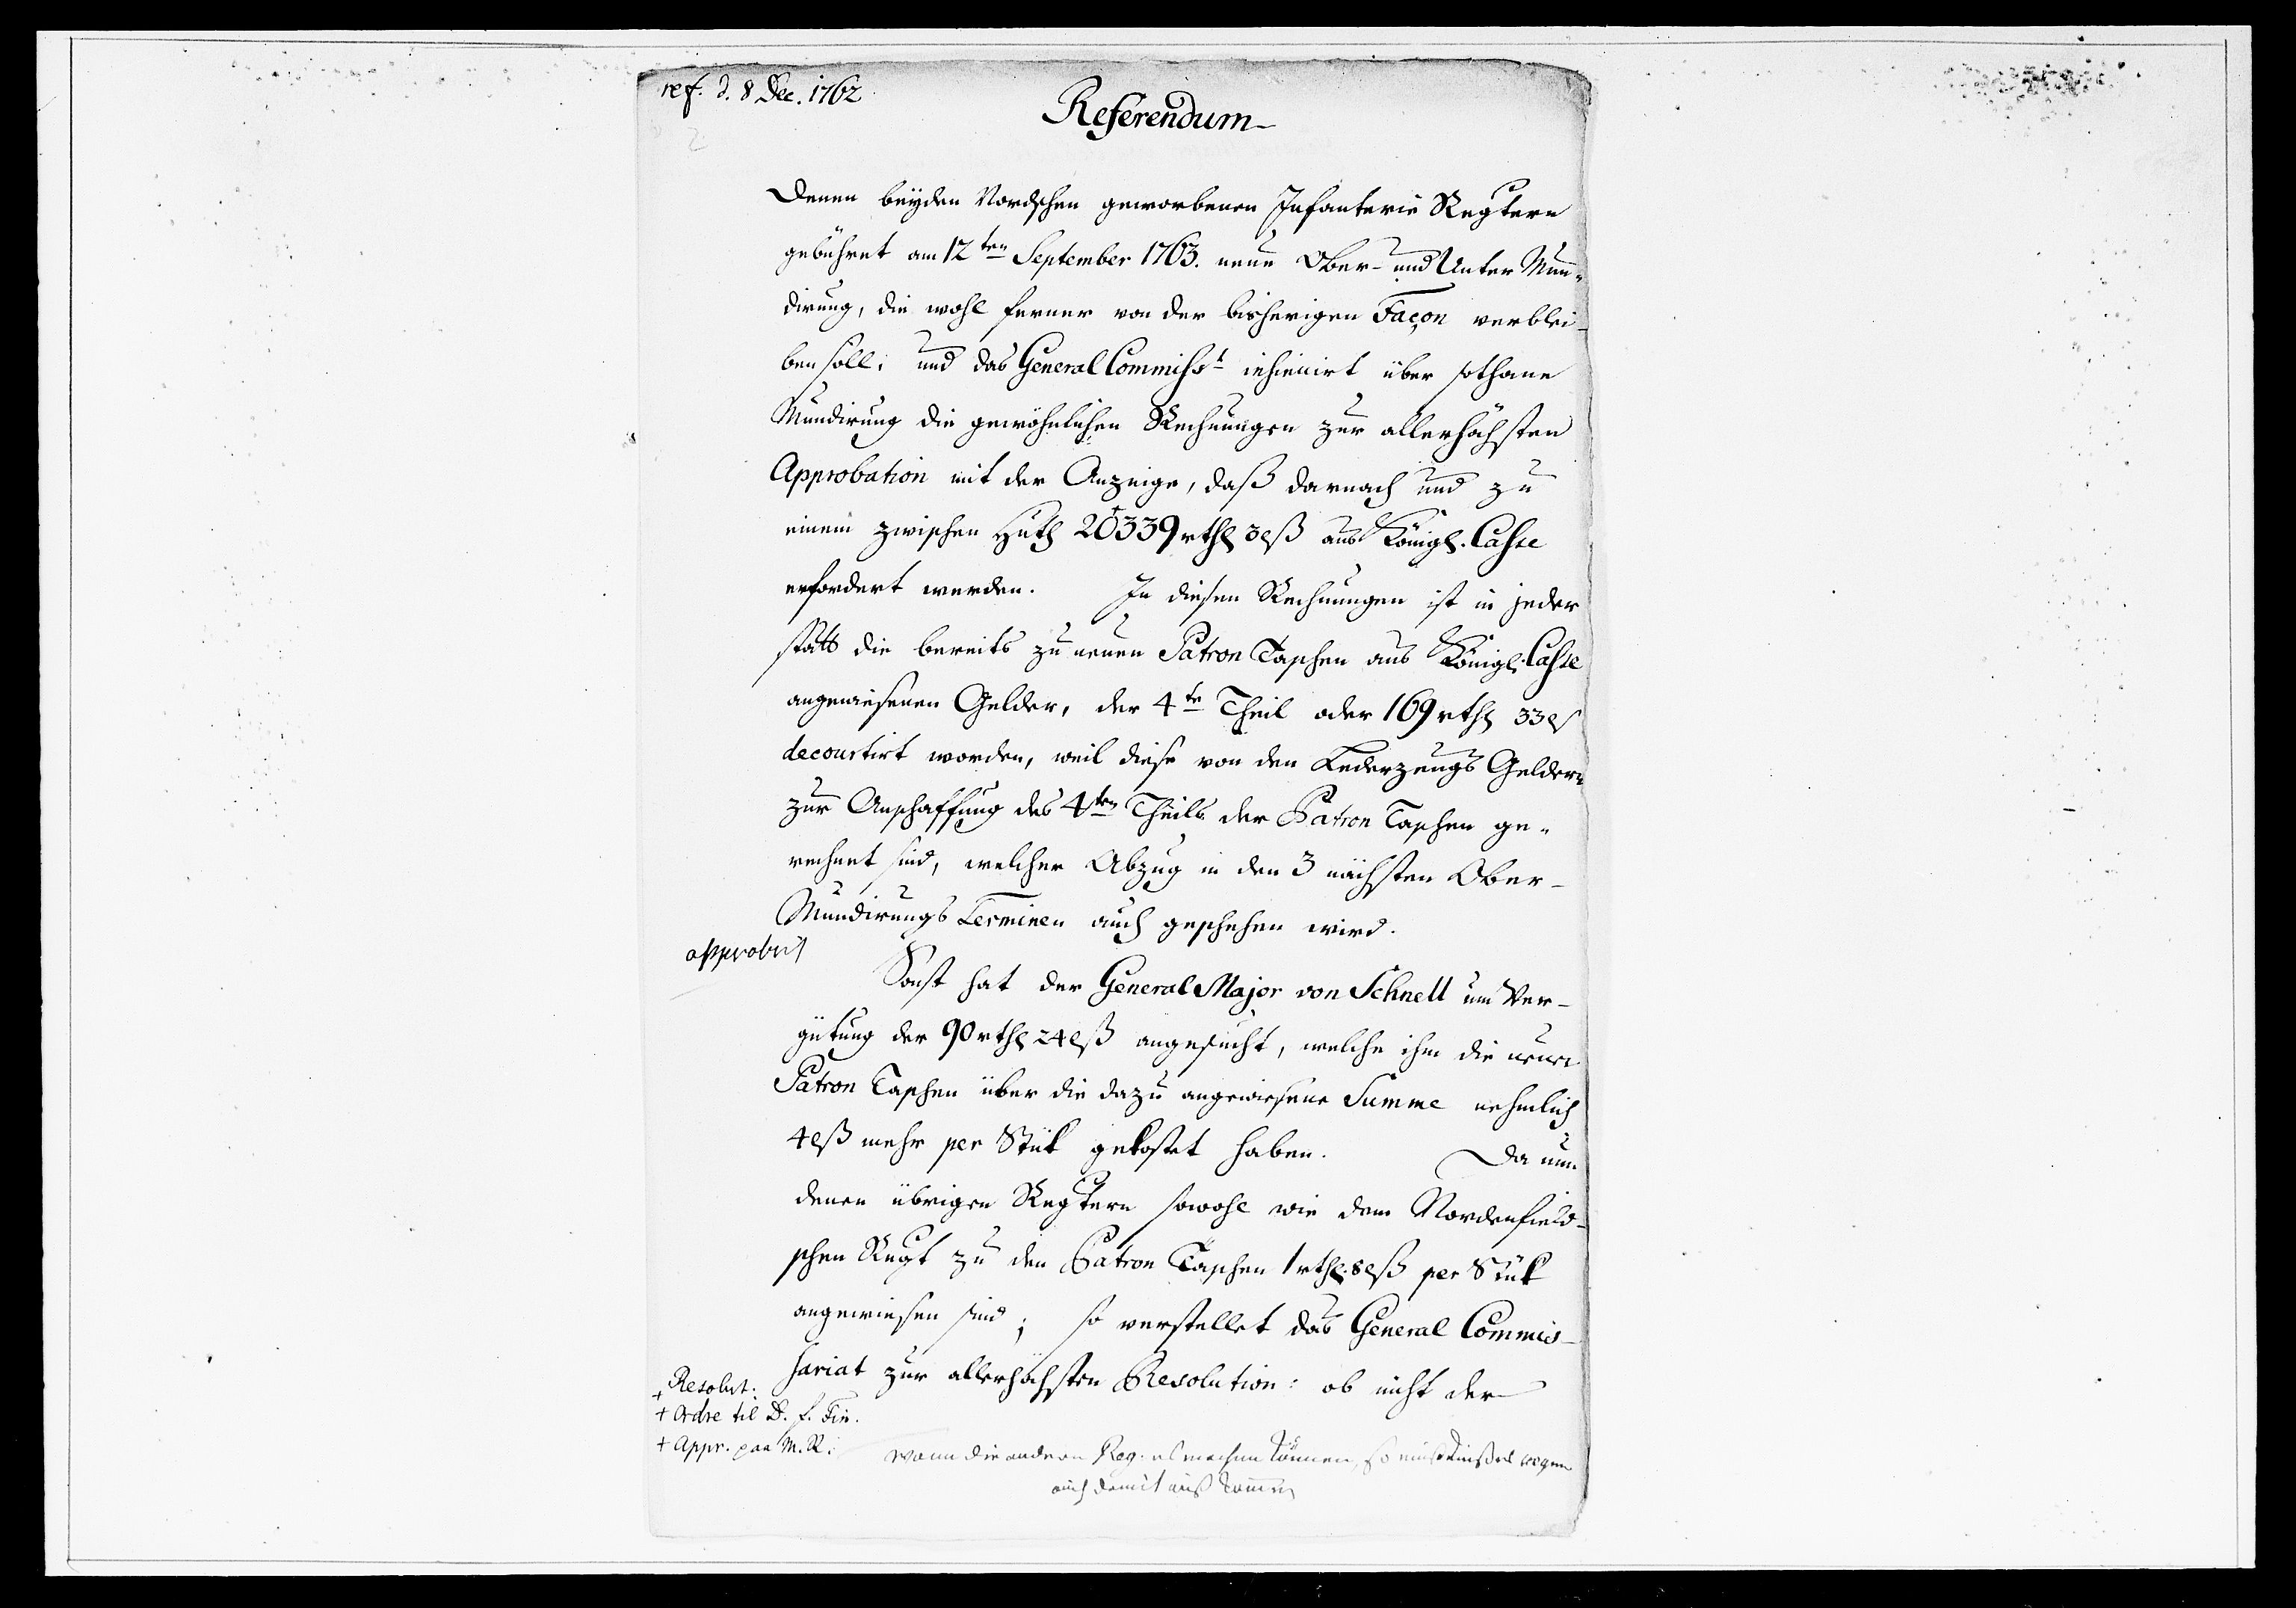 ref. d. 8 Dec. 1762
Referendum
Denen beyden Nordschen geworbenen Infanterie Regtern
gebühret am 12ten September 1763. neue Ober- und Unter Mun-
dirung, die wohl ferner von der bisherigen Façon verblei-
ben soll; und das General Commisst insinuirt über sothane
Mundirung die gewöhnlichen Rechnungen zur allerhöchsten
Approbation mit der Anzeige, daß darnach und zu
einem zwischen Huth 20339 rthl 3 lß aus Königl. Casse
erfordert werden. In diesen Rechnungen ist in jeder
statt die bereits zu neuen Patron Taschen aus Königl. Casse
angewiesenen Gelder, der 4te Theil oder 169 rthl 33 lß
decourtirt worden, weil diese von den Lederzeugs Geldern
zur Anschaffung des 4ten Theils der Patron Taschen ge-
rechnet sind, welcher Abzug in den 3 nächsten Ober-
Mundirungs Terminen auch geschehen wird.
approbirt
Sonst hat der General Major von Schnell um Ver-
gütung der 90 rthl 24 lß angesucht, welche ihm die neuen
Patron Taschen über die dazu angewiesene Summe nehmlich
4 lß mehr per Stük gekostet haben. Da nun
denen übrigen Regtern sowohl wie dem Nordenfield-
schen Regt zu den Patron Taschen 1 rthl. 8 lß per Stük
angewiesen sind; so verstellet das General Commis-
sariat zur allerhöchsten Resolution: ob nicht der
Resolut.
+ Ordre til D. f. Fin.
+ Appr. paa M. R.
Wann die andern Reg. es machen können, so muß dieses wegen
auch damit aus kommen